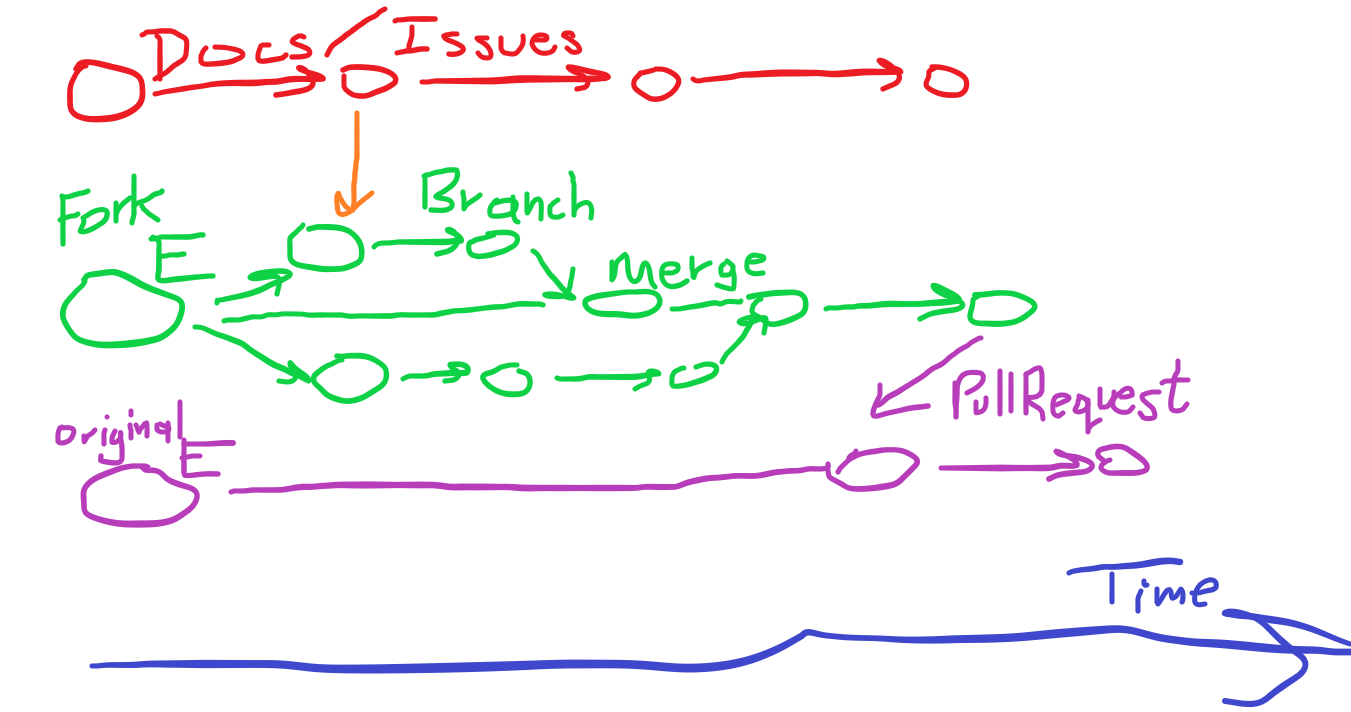 Docs / Issues
Fork
E
Branch
merge
original
E
PullRequest
Time